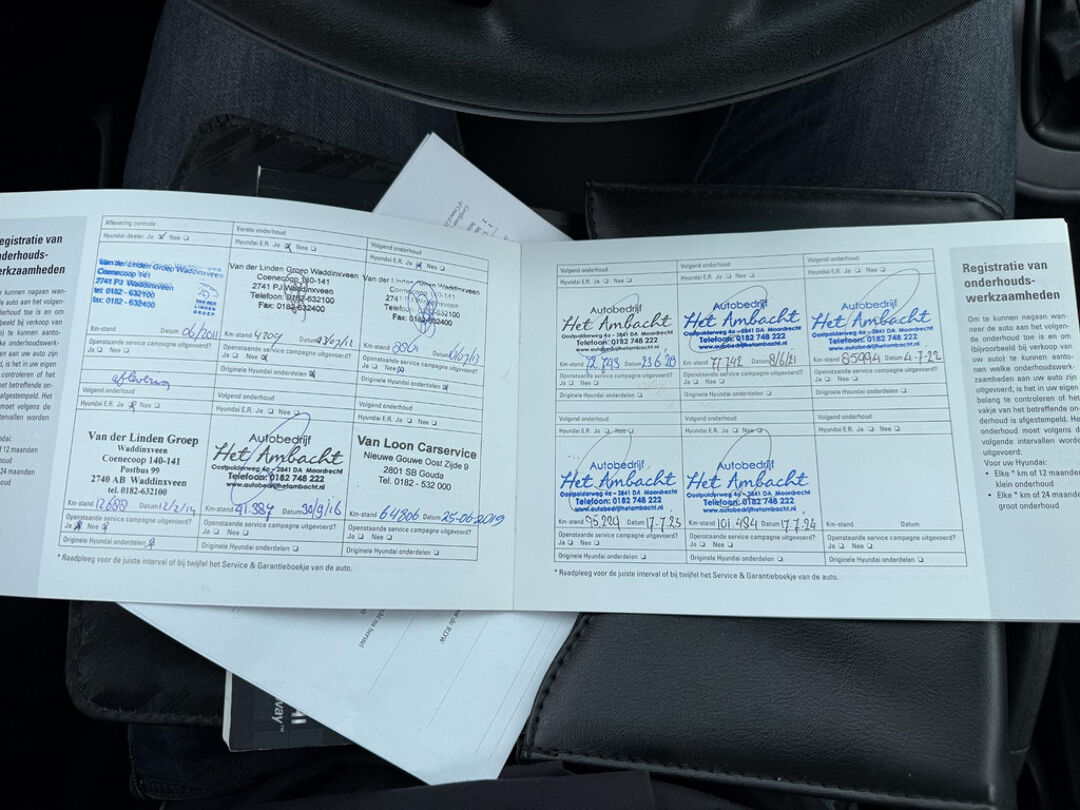 egistratie van
nderhouds-
erkzaamheden
Aflevering controle
Hyundai-dealer Ja Nee
Van der Linden Groep Waddinxveen
Coenecoop 141
2741 PJ Waddinxveen
tel: 0182 - 632100
fax: 0182 - 632400
VAN DER
LINDEN
GROEP
Km-stand Datum: 06/2011
Openstaande service campagne uitgevoerd?
Ja Nee
aflevering
Eerste onderhoud
Hyundai E.R. Ja Nee
Van der Linden Groep Waddinxveen
Coenecoop 140-141
2741 PJ Waddinxveen
Telefoon: 0182-632100
Fax: 0182-632400
Km-stand 4709 Datum
Openstaande service campagne uitgevoerd?
Ja Nee
Originele Hyundai onderdelen
Volgend onderhoud
Hyundai E.R. Ja Nee
Van der Linden Groep Waddinxveen
Coenecoop 140-141
2741 PJ Waddinxveen
Telefoon: 0182-632100
Fax: 0182-632400
Km-stand Datum
Openstaande service campagne uitgevoerd?
Ja Nee
Originele Hyundai onderdelen
Volgend onderhoud
Hyundai E.R. Ja Nee
Van der Linden Groep
Waddinxveen
Coenecoop 140-141
Postbus 99
2740 AB Waddinxveen
tel. 0182-632100
Km-stand 12688 Datum 12/2/14
Openstaande service campagne uitgevoerd?
Ja Nee
Originele Hyundai onderdelen
Volgend onderhoud
Hyundai E.R. Ja Nee
Autobedrijf
Het Ambacht
Oostpolderweg 4a - 2841 DA Moordrecht
Telefoon: 0182 748 222
www.autobedrijfhetambacht.nl
Km-stand 41.384 Datum 30/9/16
Openstaande service campagne uitgevoerd?
Ja Nee
Originele Hyundai onderdelen
Volgend onderhoud
Hyundai E.R. Ja Nee
Van Loon Carservice
Nieuwe Gouwe Oost Zijde 9
2801 SB Gouda
Tel. 0182 - 532 000
Km-stand 64806 Datum 25-06-2019
Openstaande service campagne uitgevoerd?
Ja Nee
Originele Hyundai onderdelen
* Raadpleeg voor de juiste interval of bij twijfel het Service & Garantieboekje van de auto.
Volgend onderhoud
Hyundai E.R. Ja Nee
Autobedrijf
Het Ambacht
Oostpolderweg 4a - 2841 DA Moordrecht
Telefoon: 0182 748 222
www.autobedrijfhetambacht.nl
Km-stand 72.743 Datum 23.6.20
Openstaande service campagne uitgevoerd?
Ja Nee
Originele Hyundai onderdelen
Volgend onderhoud
Hyundai E.R. Ja Nee
Autobedrijf
Het Ambacht
Oostpolderweg 4a - 2841 DA Moordrecht
Telefoon: 0182 748 222
www.autobedrijfhetambacht.nl
Km-stand 77.742 Datum 8/6/21
Openstaande service campagne uitgevoerd?
Ja Nee
Originele Hyundai onderdelen
Volgend onderhoud
Hyundai E.R. Ja Nee
Autobedrijf
Het Ambacht
Oostpolderweg 4a - 2841 DA Moordrecht
Telefoon: 0182 748 222
www.autobedrijfhetambacht.nl
Km-stand 85994 Datum 4-7-22
Openstaande service campagne uitgevoerd?
Ja Nee
Originele Hyundai onderdelen
Volgend onderhoud
Hyundai E.R. Ja Nee
Autobedrijf
Het Ambacht
Oostpolderweg 4a - 2841 DA Moordrecht
Telefoon: 0182 748 222
www.autobedrijfhetambacht.nl
Km-stand 95.229 Datum 17-7-23
Openstaande service campagne uitgevoerd?
Ja Nee
Originele Hyundai onderdelen
Volgend onderhoud
Hyundai E.R. Ja Nee
Autobedrijf
Het Ambacht
Oostpolderweg 4a - 2841 DA Moordrecht
Telefoon: 0182 748 222
www.autobedrijfhetambacht.nl
Km-stand 101.484 Datum 17.7.24
Openstaande service campagne uitgevoerd?
Ja Nee
Originele Hyundai onderdelen
Volgend onderhoud
Hyundai E.R. Ja Nee
Km-stand Datum
Openstaande service campagne uitgevoerd?
Ja Nee
Originele Hyundai onderdelen
* Raadpleeg voor de juiste interval of bij twijfel het Service & Garantieboekje van de auto.
Registratie van
onderhouds-
werkzaamheden
Om te kunnen nagaan wan-
neer de auto aan het volgen-
de onderhoud toe is en om
(bijvoorbeeld bij verkoop van
uw auto) te kunnen aanto-
nen welke onderhoudswerk-
zaamheden aan uw auto zijn
uitgevoerd, is het in uw eigen
belang te controleren of het
vakje van het betreffende on-
derhoud is afgestempeld. Het
onderhoud moet volgens de
volgende intervallen worden
uitgevoerd:
Voor uw Hyundai:
• Elke * km of 12 maanden
klein onderhoud
• Elke * km of 24 maanden
groot onderhoud